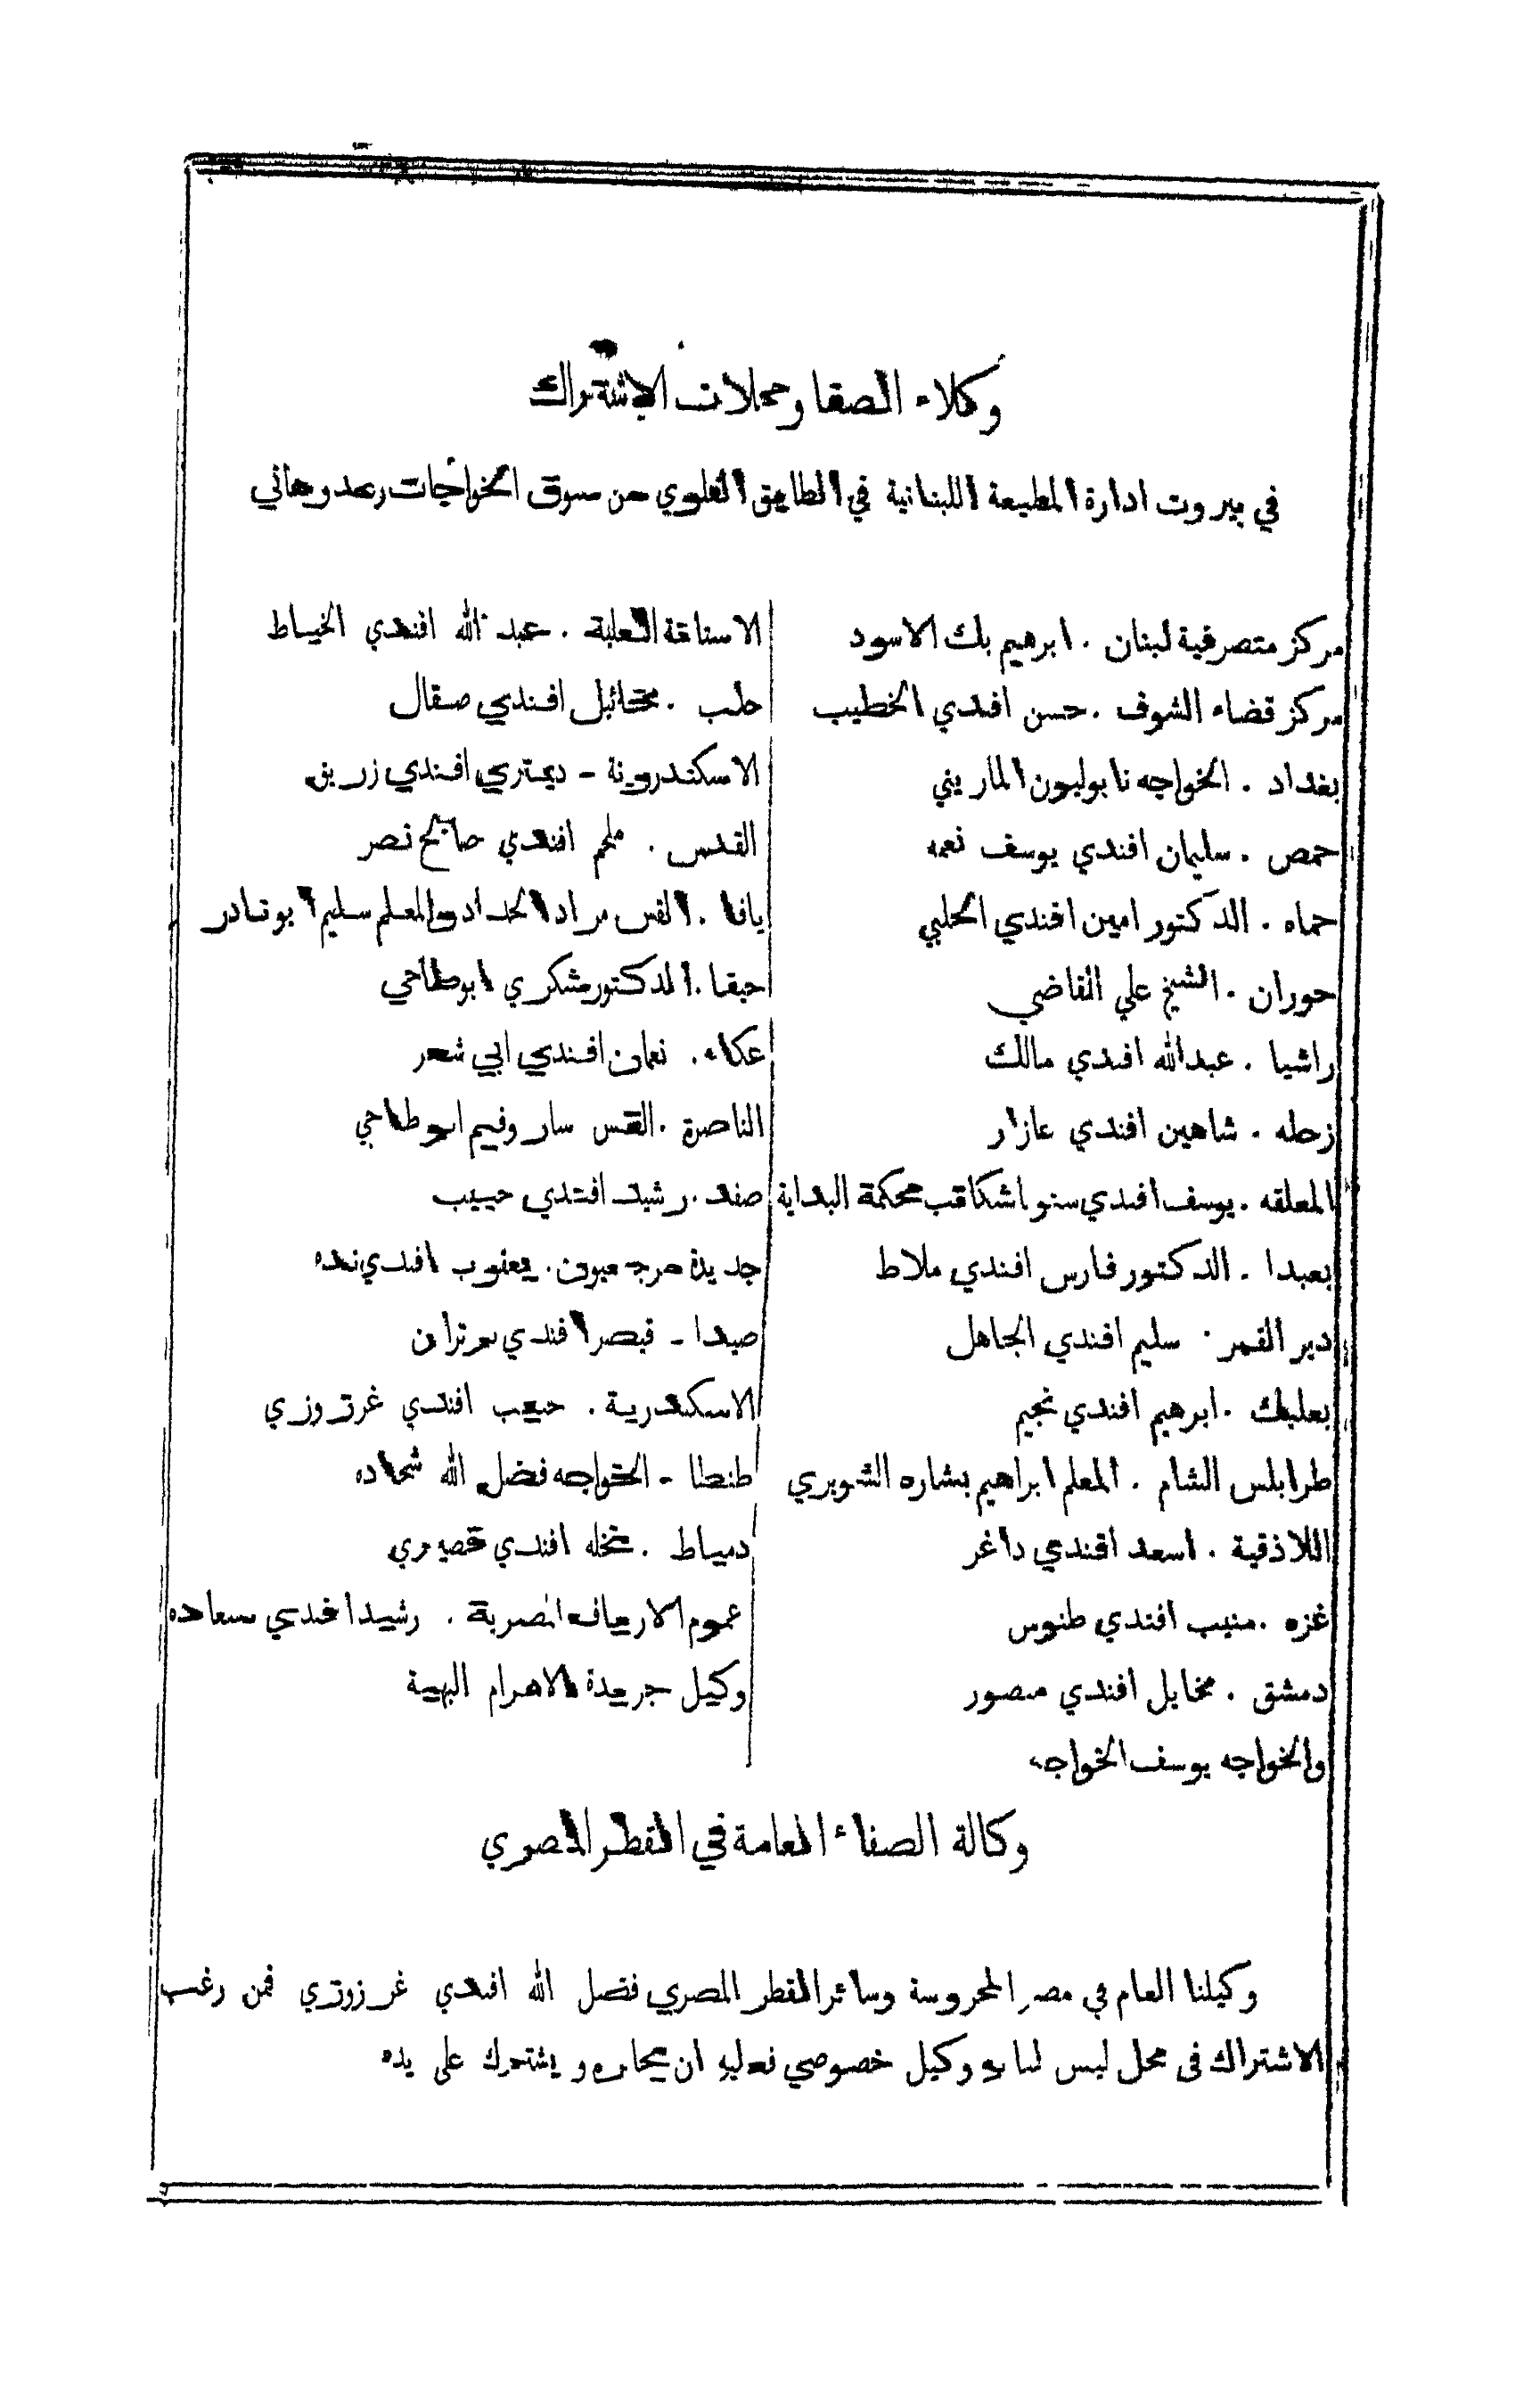 وكلاء الصفا ومحلات الاشتراك
في بيروت ادارة المطبعة اللبنانية في الطابق العلوي من سوق الخواجات رعد وهاني
مركز متصرفية لبنان . ابرهيم بك الاسود
مركز قضاء الشوف . حسن افندي الخطيب
بغداد . الخواجه نابوليون الماريني
حمص . سليمان افندي يوسف نعمه
حماه . الدكتور امين افندي الحلبي
حوران . الشيخ علي القاضي
راشيا . عبدالله افندي مالك
زحله . شاهين افندي عازار
المعلقه . يوسف افندي سنو باشكاتب محكمة البداية
بعبدا . الدكتور فارس افندي ملاط
دير القمر . سليم افندي الجاهل
بعلبك . ابرهيم افندي نجيم
طرابلس الشام . المعلم ابراهيم بشاره الشويري
اللاذقية . اسعد افندي داغر
غزه . منيب افندي طنوس
دمشق . مخايل افندي منصور
والخواجه يوسف الخواجه
الاستانة العلية . عبد الله افندي الخياط
حلب . ميخائيل افندي صقال
الاسكندرونة - ديمتري افندي زريق
القدس . ملحم افندي صابح نصر
يافا . القس مراد الحداد والمعلم سليم ابو نادر
حيفا . الدكتور شكري ابو طاحي
عكاء . نعمان افندي ابي شعر
الناصرة . القس ساروفيم ابوطاحي
صفد . رشيد افندي حبيب
جديدة مرجعيون . يعقوب افندي نده
صيدا - قيصر افندي
الاسكندرية . حبيب افندي غرزوزي
طنطا - الخواجه فضل الله شحاده
دمياط . نخله افندي قصيري
عموم الارياف المصرية . رشيد افندي سعاده
وكيل جريدة الاهرام البهية
وكالة الصفاء العامة في القطر المصري
وكيلنا العام في مصر المحروسة وسائر القطر المصري فضل الله افندي غرزوزي فمن رغب
الاشتراك في محل ليس لنا به وكيل خصوصي فعليه ان يخابره ويشترك على يده